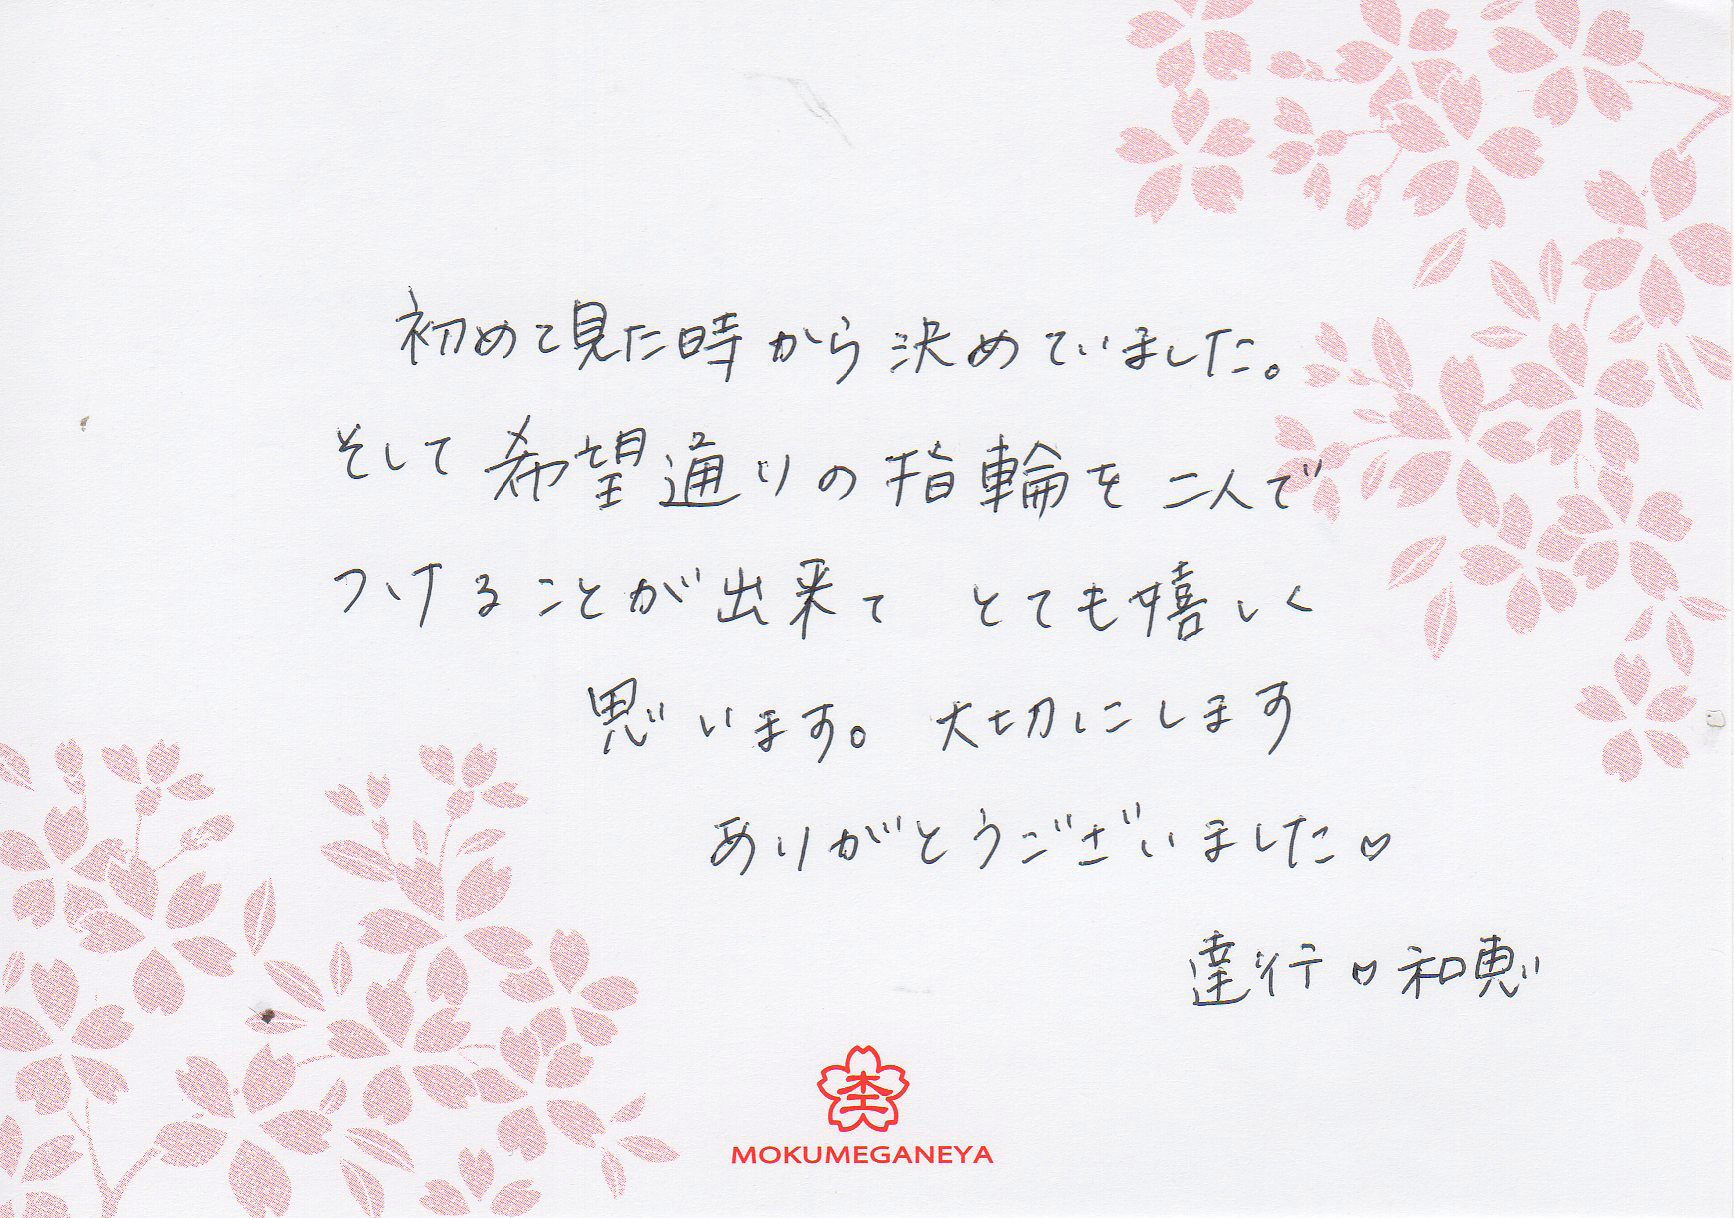 初めて見た時から決めていました。
そして希望通りの指輪を二人で
つけることが出来て とても嬉しく
思います。大切にします
ありがとうございました♡
達行♡和恵
MOKUMEGANEYA